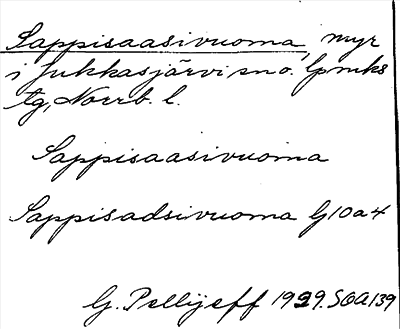 Sappisaasivuoma, myr
i Jukkasjärvi sn o. lpmks
tg, Norrb. l.
Sappisaasivuoma
Sappisadsivuoma G10a4
G. Pellijeff 1929. SOA139